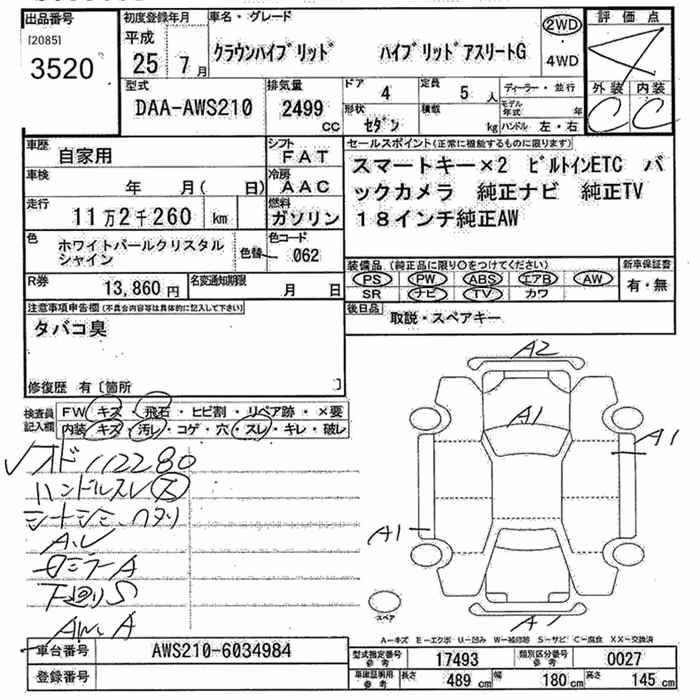 出品番号 初度登録年月 車名・グレード 2WD 評価点
[2085] 平成 クラウンハイブリッド ハイブリッドアスリートG ・
3520 25年 7月 4WD 4
型式 排気量 ドア 4 定員 5 人 ディーラー・並行 外装 内装
DAA-AWS210 2499 cc 形状 セダン 積載 kg モデル年式 年 C C
ハンドル 左・右
車歴 自家用 シフト FAT セールスポイント(正常に機能するものに限ります)
車検 年 月( 日) 冷房 AAC スマートキー×2 ビルトインETC バ
走行 11万2千260 km 燃料 ガソリン ックカメラ 純正ナビ 純正TV
18インチ純正AW
色 ホワイトパールクリスタル 色替 色コード 062
シャイン
装備品(純正品に限り○をつけてください) 新車保証書
R券 13,860円 名変通知期限 月 日 PS PW ABS エアB AW 有・無
SR ナビ TV カワ
注意事項申告欄(不具合内容等は具体的に記入して下さい) 後日品 取説・スペアキー
タバコ臭
修復歴 有〔箇所 〕
検査員 FW キズ・飛石・ヒビ割・リペア跡・×要
記入欄 内装 キズ・汚レ・コゲ・穴・スレ・キレ・破レ
A2
A1
A1
A1
オド112280
ハンドルスレ
A
下廻りS
AW A
スペア
A1
A-キズ E-エクボ U-凹み W-補修跡 S-サビ C-腐食 XX-交換済
車台番号 AWS210-6034984 型式指定番号 参考 17493 類別区分番号 参考 0027
登録番号 車庫証明用 参考 長さ 489 cm 幅 180 cm 高さ 145 cm